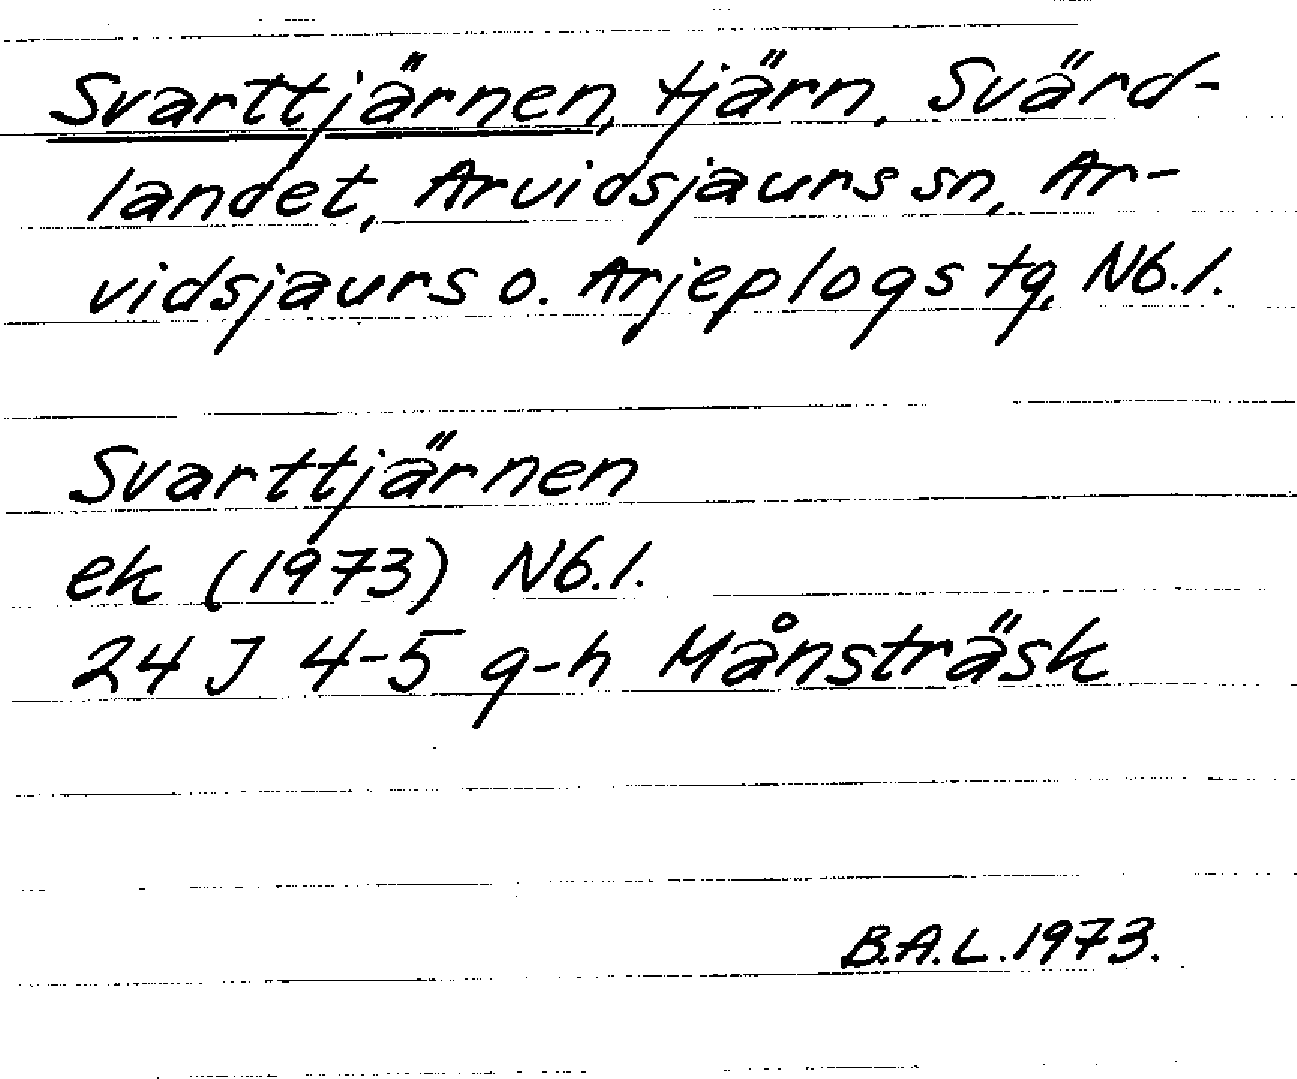 Svarttjärnen, tjärn, Svärd-
landet, Arvidsjaurs sn, Ar-
vidsjaurs o. Arjeplogs tg, Nb.l.
Svarttjärnen
ek (1973) Nb.l.
24 J 4-5 g-h Månsträsk
B.A.L. 1973.